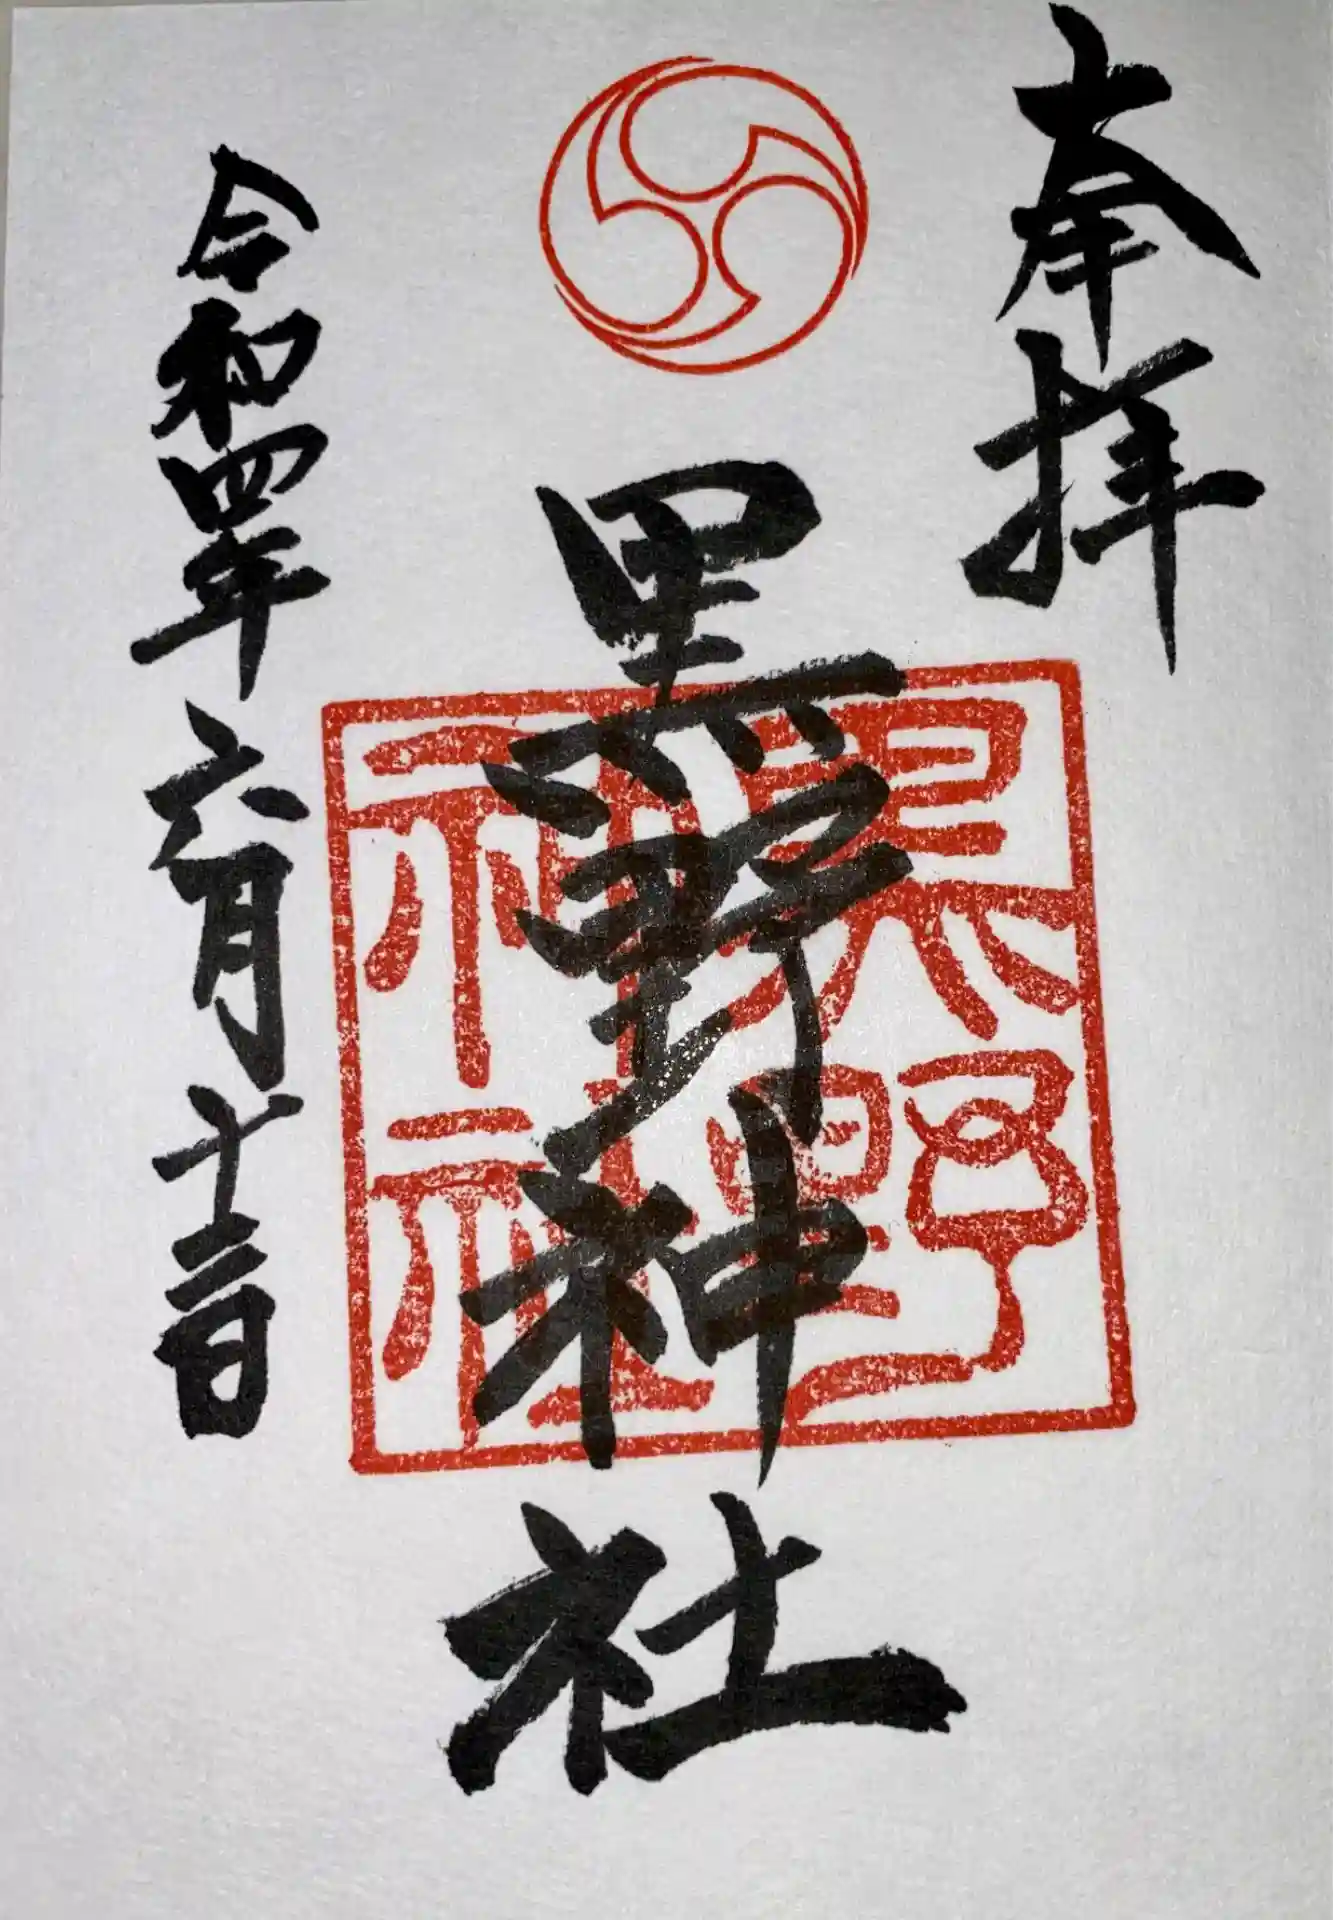 奉拝
黒野神社
令和四年六月十二日
黒野
神社